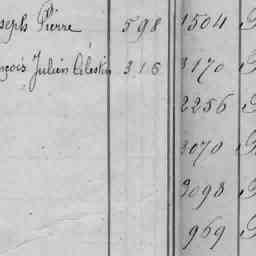 seph Pierre 598 1504
nçois Julien Célestin 316 3170
2256
3070
9098
969